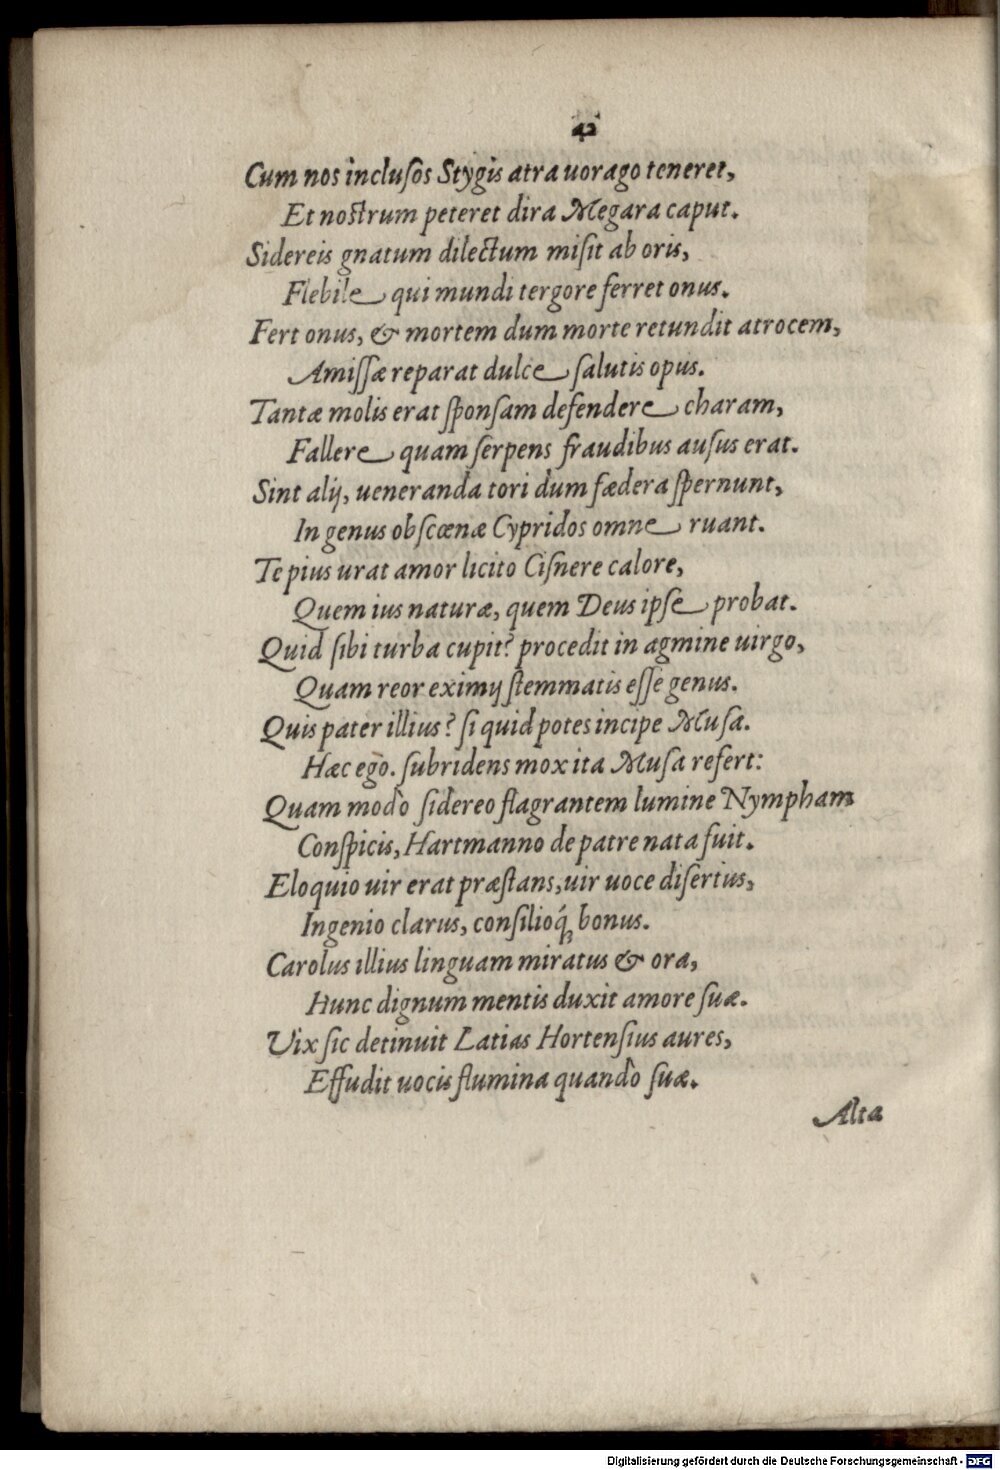 42
Cum nos incluſos Stygis atra uorago teneret,
Et noſtrum peteret dira Megara caput.
Sidereis gnatum dilectum miſit ab oris,
Flebile qui mundi tergore ferret onus.
Fert onus, & mortem dum morte retundit atrocem,
Amiſſæ reparat dulce ſalutis opus.
Tantæ molis erat ſponſam defendere charam,
Fallere quam ſerpens fraudibus auſus erat.
Sint alij, ueneranda tori dum fædera ſpernunt,
In genus obſcœnæ Cypridos omne ruant.
Te pius urat amor licito Ciſnere calore,
Quem ius naturæ, quem Deus ipſe probat.
Quid ſibi turba cupit? procedit in agmine uirgo,
Quam reor eximij ſtemmatis eſſe genus.
Quis pater illius? ſi quid potes incipe Muſa.
Hæc ego. ſubridens mox ita Muſa refert:
Quam modò ſidereo flagrantem lumine Nympham
Conſpicis, Hartmanno de patre nata fuit.
Eloquio uir erat præſtans, uir uoce diſertus,
Ingenio clarus, conſilioq́; bonus.
Carolus illius linguam miratus & ora,
Hunc dignum mentis duxit amore ſuæ.
Vix ſic detinuit Latias Hortenſius aures,
Effudit uocis flumina quandò ſuæ.
Alta
Digitalisierung gefördert durch die Deutsche Forschungsgemeinschaft - DFG